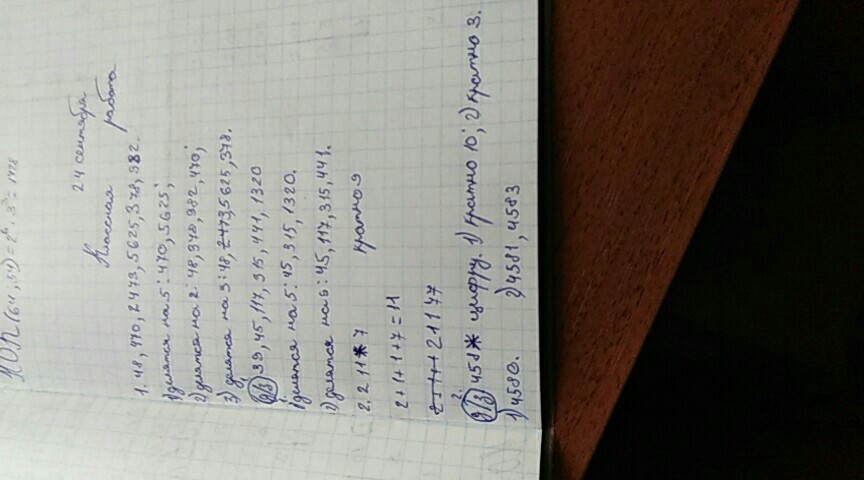 НОК(64,54)=2⁶·3³=1728
24 сентября
Классная работа
1. 48, 470, 2473, 5625, 378, 982.
1) делятся на 5: 470, 5625;
2) делятся на 2: 48, 378, 982, 470;
3) делятся на 3: 48, 2473, 5625, 378.
Д/З 39, 45, 117, 315, 441, 1320
1) делятся на 5: 45, 315, 1320.
2) делятся на 9: 45, 117, 315, 441.
2. 211*7 кратно 9
2+1+1+7=11
2+1+1+ 21177
Д/З 2. 458* цифру. 1) кратно 10; 2) кратно 3.
1) 4580. 2) 4581, 4583